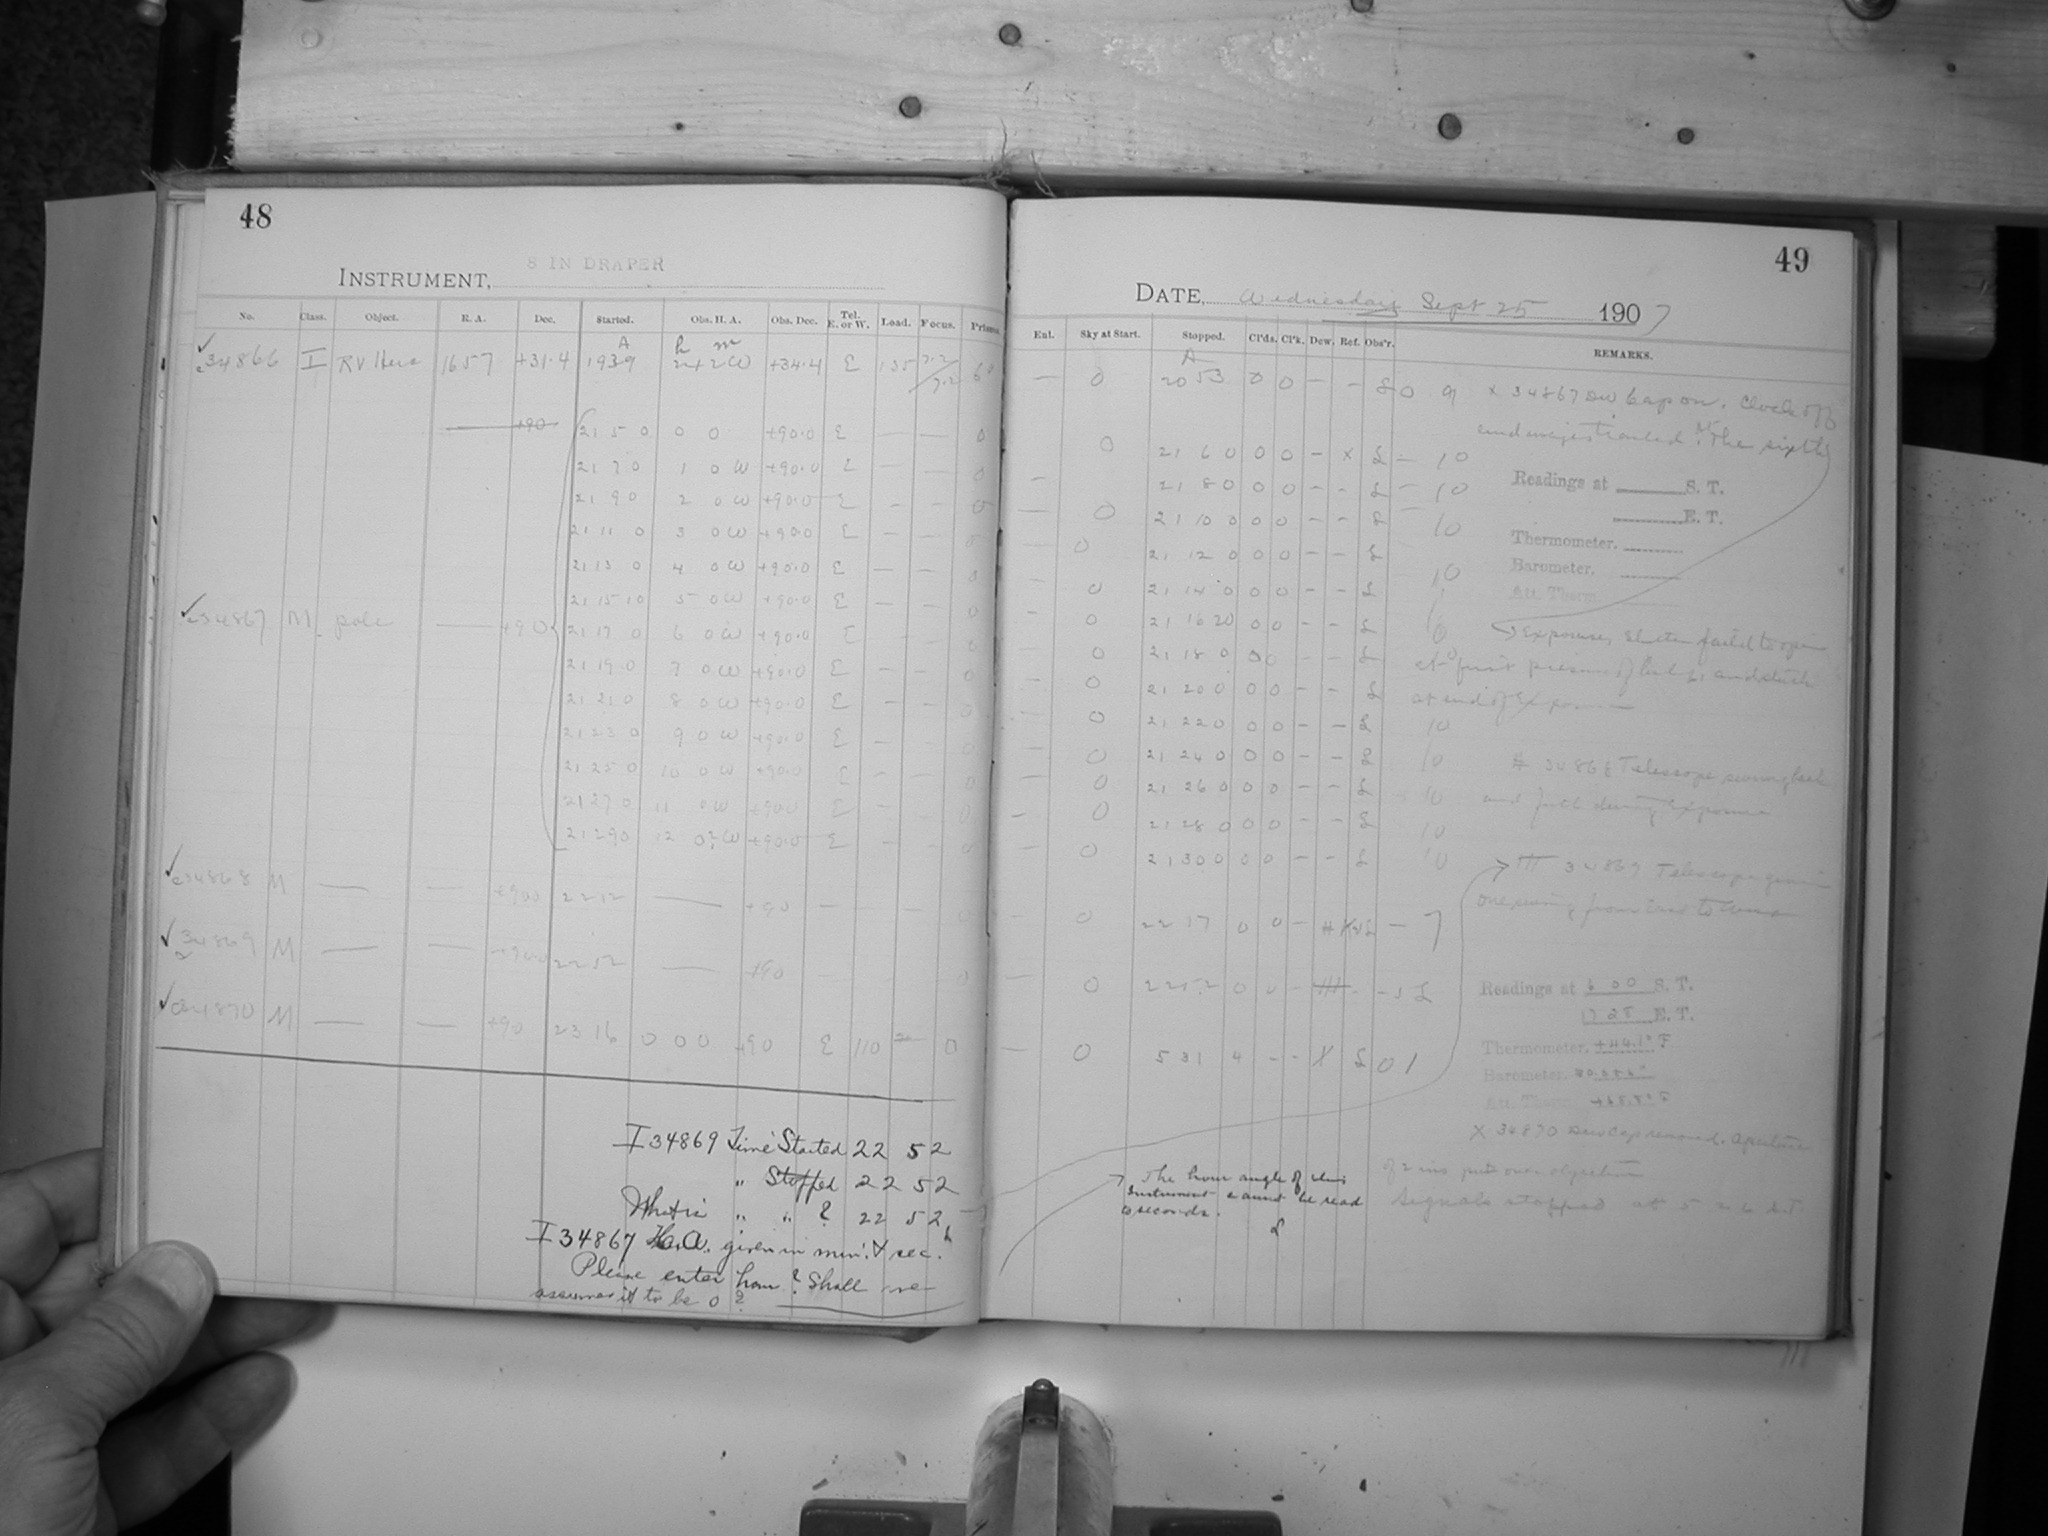 48
8 IN DRAPER
INSTRUMENT,
No. Class. Object. R. A. Dec. Started. Obs. H. A. Obs. Dec. Tel. E. or W. Load. Focus. Prisms
A h m
34866 I RV Herc 1657 +31.4 1939 2 42 W +34.4 E 135 7.2/7.2
+90 21 5 0 0 0 +90.0 E — — 0
21 7 0 1 0 W +90.0 E — — 0
21 9 0 2 0 W +90.0 E — — 0
21 11 0 3 0 W +90.0 E — — 0
21 13 0 4 0 W +90.0 E — — 0
21 15 10 5 0 W +90.0 E — — 0
34867 M pole — +90 21 17 0 6 0 W +90.0 E — — 0
21 19 0 7 0 W +90.0 E — — 0
21 21 0 8 0 W +90.0 E — — 0
21 23 0 9 0 W +90.0 E — — 0
21 25 0 10 0 W +90.0 E — — 0
21 27 0 11 0 W +90.0 E — — 0
21 29 0 12 0 ? W +90.0 E — — 0
34868 M — — +90.0 22 12 — +90 — — — 0
34869 M — — +90.0 22 52 — +90 0
34870 M — — +90 23 16 0 0 0 +90 E 110 0
I 34869 Time Started 22 52
" Stopped 22 52
What is " " ? 22 52
I 34867 H.A. given in min. & sec.
Please enter hour? Shall we
assume it to be 0?
49
DATE, Wednesday Sept 25 1907
Ent. Sky at Start. Stopped. Cl'ds. Cl'k. Dew. Ref. Obs'r. REMARKS.
A
— 0 20 53 0 0 — — L 0 9
0 21 6 0 0 0 — x L — 10
— 21 8 0 0 0 — — L — 10
— 0 21 10 0 0 0 — — L 10
— 0 21 12 0 0 0 — — L
— 0 21 14 0 0 0 — — L 10
— 0 21 16 20 0 0 — — L
— 0 21 18 0 0 0 — — L
— 0 21 20 0 0 0 — — L
— 0 21 22 0 0 0 — — L 10
— 0 21 24 0 0 0 — — L 10
— 0 21 26 0 0 0 — — L 10
— 0 21 28 0 0 0 — — L 10
0 21 30 0 0 0 — — L 10
0 22 17 0 0 — # L — 7
— 0 22 52 0 0 — L
— 0 5 31 4 — — X L 0 1
x 34867 Dew Cap on. Clock off
The sixth
Readings at S. T.
E. T.
Thermometer.
Barometer.
Att. Therm.
Exposure, shutter failed to open
at first pressure of bulb and stuck
at end of exposure
# 34868 Telescope swung back
and forth during exposure
34869 Telescope given
one swing from East to West
Readings at 6 00 S. T.
17 28 E. T.
Thermometer. +44.1° F
Barometer.
Att. Therm. +68.8° F
X 34870 Dew Cap removed. Aperture
of 2 ins put over objective
Signals stopped at 5 26 S.T.
The hour angle of this
instrument cannot be read
to seconds.
L